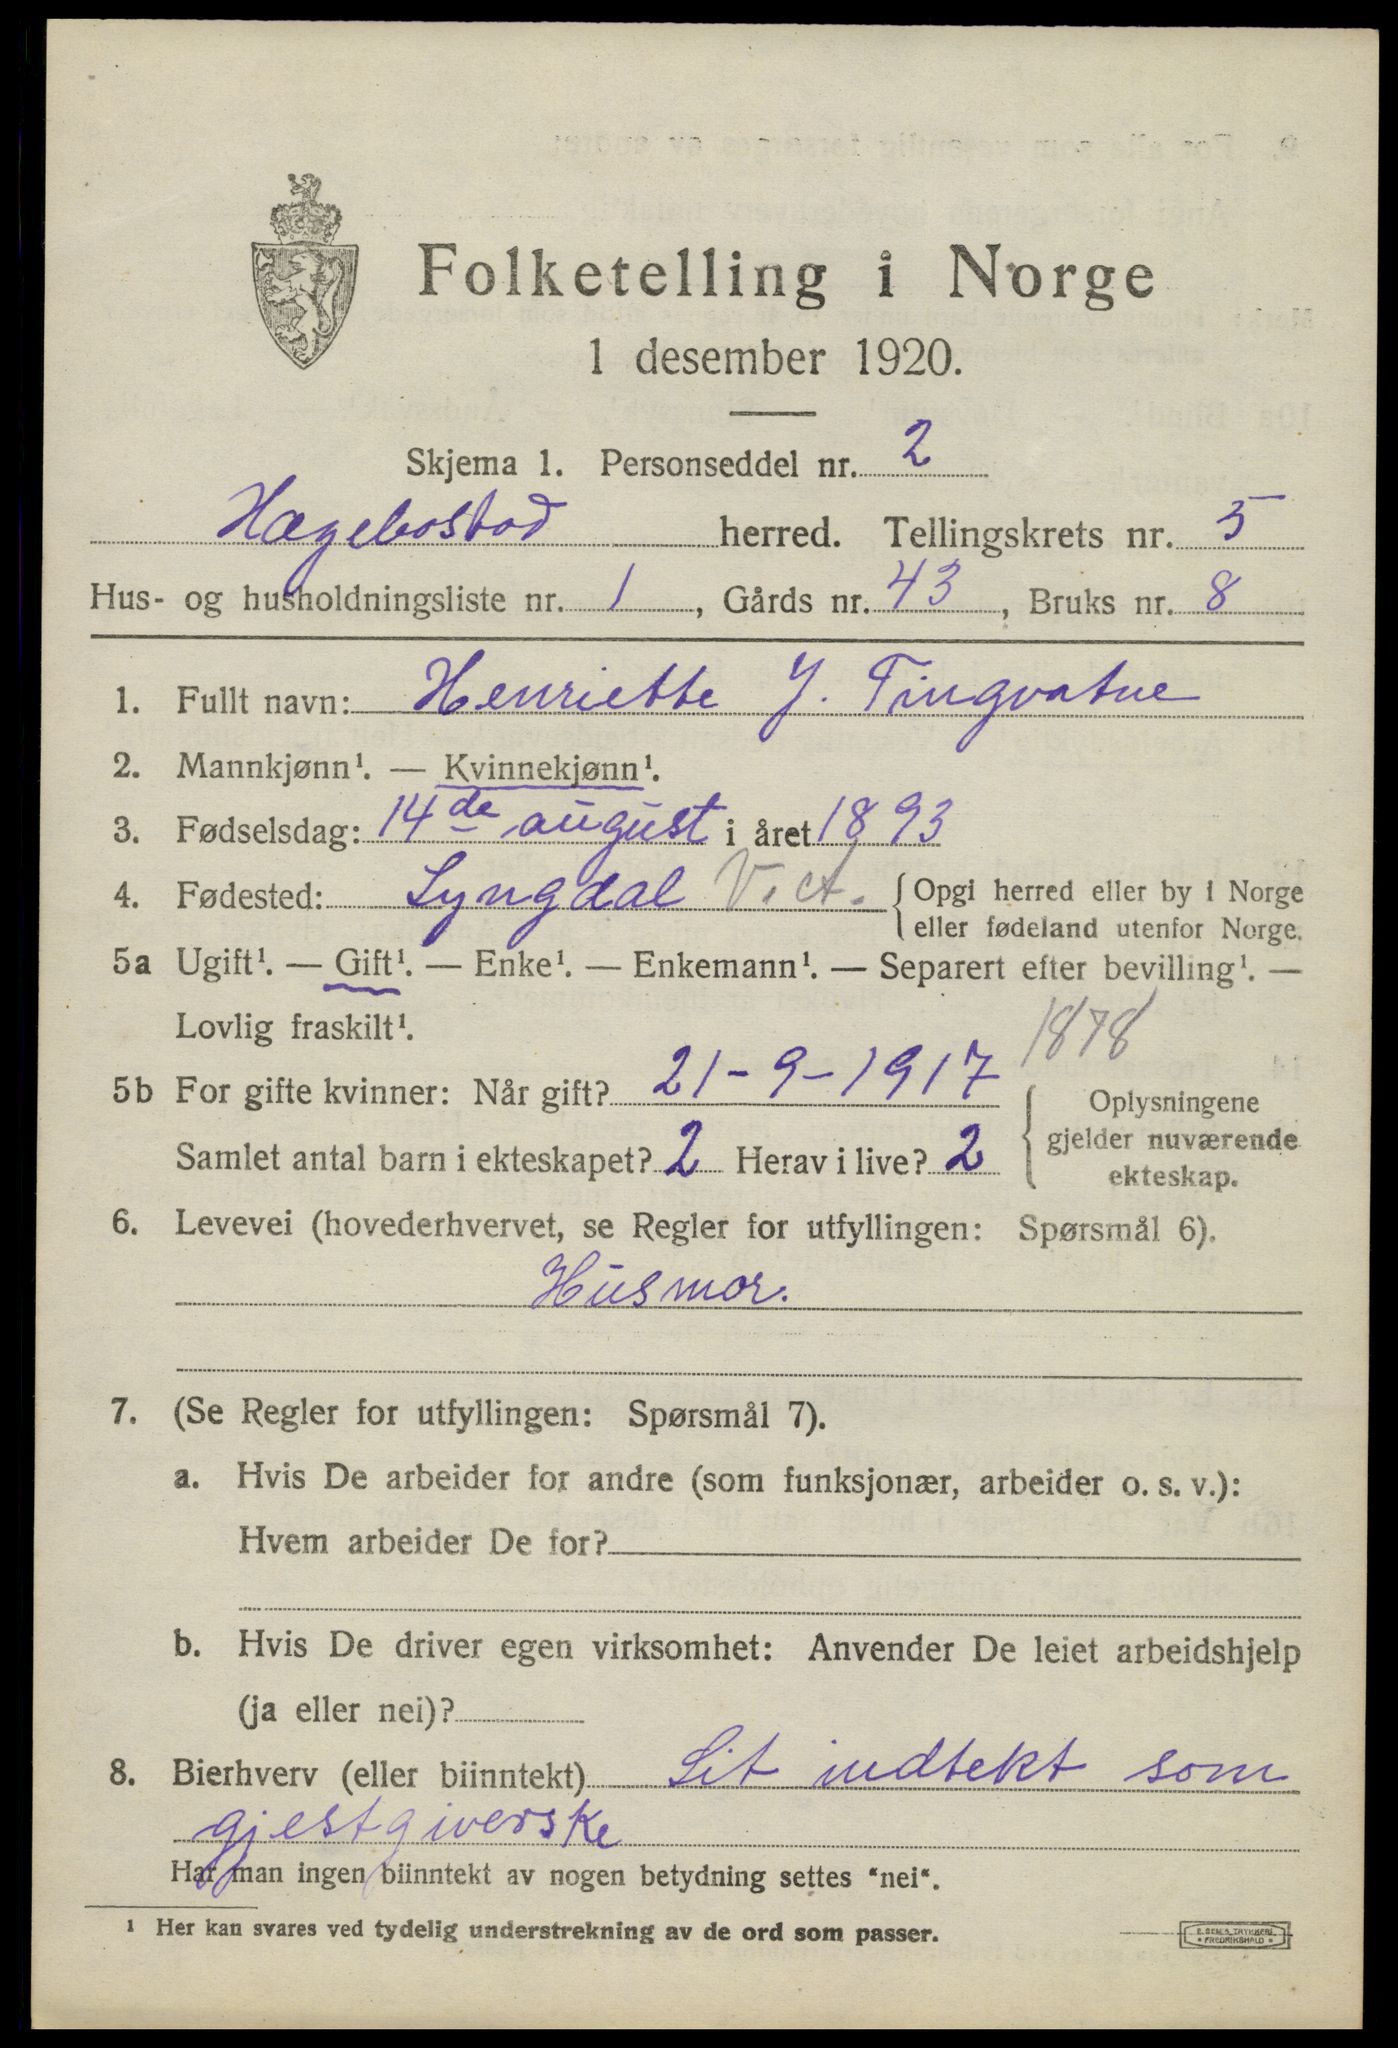 Folketelling i Norge
1 desember 1920.
Skjema 1. Personseddel nr. 2
Hægebostad herred. Tellingskrets nr. 5
Hus- og husholdningsliste nr. 1, Gårds nr. 43, Bruks nr. 8
1. Fullt navn: Henriette J. Tingvatne
2. Mannkjønn¹. — Kvinnekjønn¹.
3. Fødselsdag: 14de august i året 1893
4. Fødested: Lyngdal V. A. { Opgi herred eller by i Norge
eller fødeland utenfor Norge.
5a Ugift¹. — Gift¹. — Enke¹. — Enkemann¹. — Separert efter bevilling¹. —
Lovlig fraskilt¹.
1878
5b For gifte kvinner: Når gift? 21-9-1917
Samlet antal barn i ekteskapet? 2 Herav i live? 2
{ Oplysningene
gjelder nuværende
ekteskap.
6. Levevei (hovederhvervet, se Regler for utfyllingen: Spørsmål 6).
Husmor.
7. (Se Regler for utfyllingen: Spørsmål 7).
a. Hvis De arbeider for andre (som funksjonær, arbeider o. s. v.):
Hvem arbeider De for?
b. Hvis De driver egen virksomhet: Anvender De leiet arbeidshjelp
(ja eller nei)?
8. Bierhverv (eller biinntekt) Lit indtekt som
gjestgiverske
Har man ingen biinntekt av nogen betydning settes "nei".
¹ Her kan svares ved tydelig understrekning av de ord som passer.
E. SEM'S TRYKKERI
* FREDRIKSHALD *